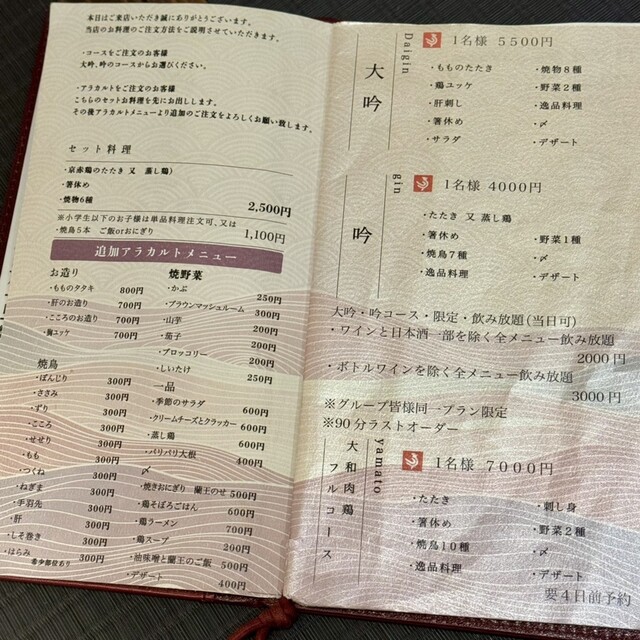 本日はご来店いただき誠にありがとうございます。
当店のお料理のご注文方法をご説明させていただきます。
・コースをご注文のお客様
大吟、吟のコースからお選びください。
・アラカルトをご注文のお客様
こちらのセットお料理を先にお出しします。
その後アラカルトメニューより追加のご注文をよろしくお願い致します。
セット料理
・京赤鶏のたたき 又 蒸し鶏)
・箸休め
・焼物6種
2,500円
※小学生以下のお子様は単品料理注文可、又は
・焼鳥5本 ご飯orおにぎり 1,100円
追加アラカルトメニュー
お造り
・もものタタキ 800円
・肝のお造り 700円
・こころのお造り 700円
・胸ユッケ 700円
焼鳥
・ぼんじり 300円
・ささみ 300円
・ずり 300円
・こころ 300円
・せせり 300円
・もも 300円
・つくね 300円
・ねぎま 300円
・手羽先 300円
・肝 300円
・しそ巻き 300円
・はらみ 300円
希少部位あり
焼野菜
・かぶ 250円
・ブラウンマッシュルーム 300円
・山芋 200円
・茄子 200円
・ブロッコリー 200円
・しいたけ 250円
一品
・季節のサラダ 600円
・クリームチーズとクラッカー 600円
・蒸し鶏 600円
・パリパリ大根 400円
〆
・焼きおにぎり 蘭王のせ 500円
・鶏そぼろごはん 600円
・鶏ラーメン 700円
・鶏スープ 200円
・油味噌と蘭王のご飯 500円
・デザート 400円
Daigin
大吟
1名様 5500円
・もものたたき
・鶏ユッケ
・肝刺し
・箸休め
・サラダ
・焼物8種
・野菜2種
・逸品料理
・〆
・デザート
gin
吟
1名様 4000円
・たたき 又 蒸し鶏
・箸休め
・焼鳥7種
・逸品料理
・野菜1種
・〆
・デザート
大吟・吟コース・限定・飲み放題(当日可)
・ワインと日本酒一部を除く全メニュー飲み放題
2000円
・ボトルワインを除く全メニュー飲み放題
3000円
※グループ皆様同一プラン限定
※90分ラストオーダー
yamato
大和肉鶏
フルコース
1名様 7000円
・たたき
・箸休め
・焼鳥10種
・逸品料理
・刺し身
・野菜2種
・〆
・デザート
要4日前予約